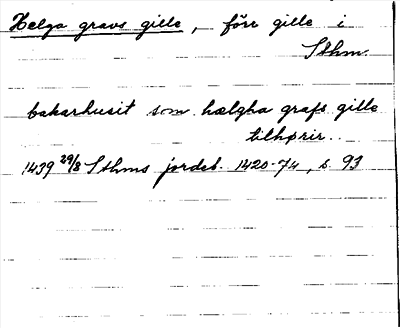 Helga gravs gille, förr gille i
Sthm.
bakarhusit som hælgha grafs gille
tilhørir..
1439 29/8 Sthms jordeb. 1420-74, s. 93